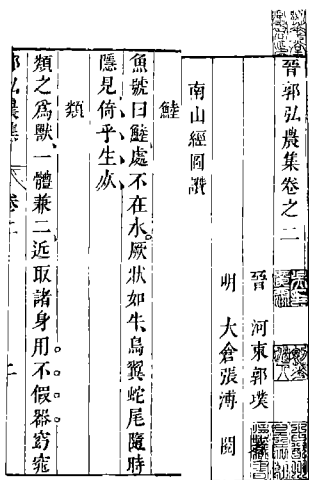 晉郭弘農集卷之二
晉 河東郭璞
明 大倉張溥 閱
南山經圖讚
鯥
魚號曰鯥處不在水厥狀如牛鳥翼蛇尾隨時
隱見倚乎生死
類
類之爲獸一體兼二近取諸身用不假器窈窕